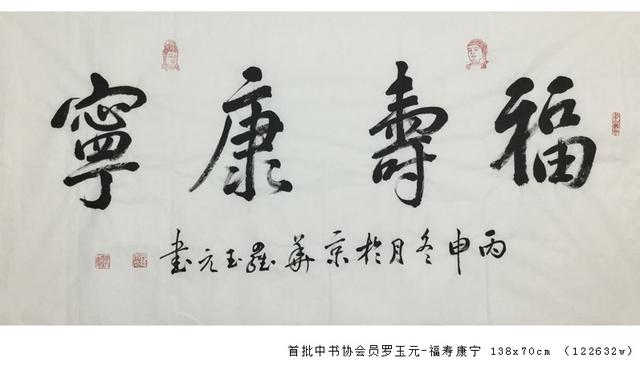 福壽康寧
丙申冬月於京華羅玉元書
首批中书协会员罗玉元-福寿康宁 138x70cm （122632w）